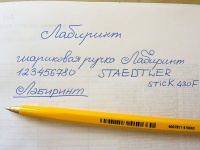 Лабиринт
шариковая ручка Лабиринт
1234567890 STAEDTLER
STICK 430F
Лабиринт